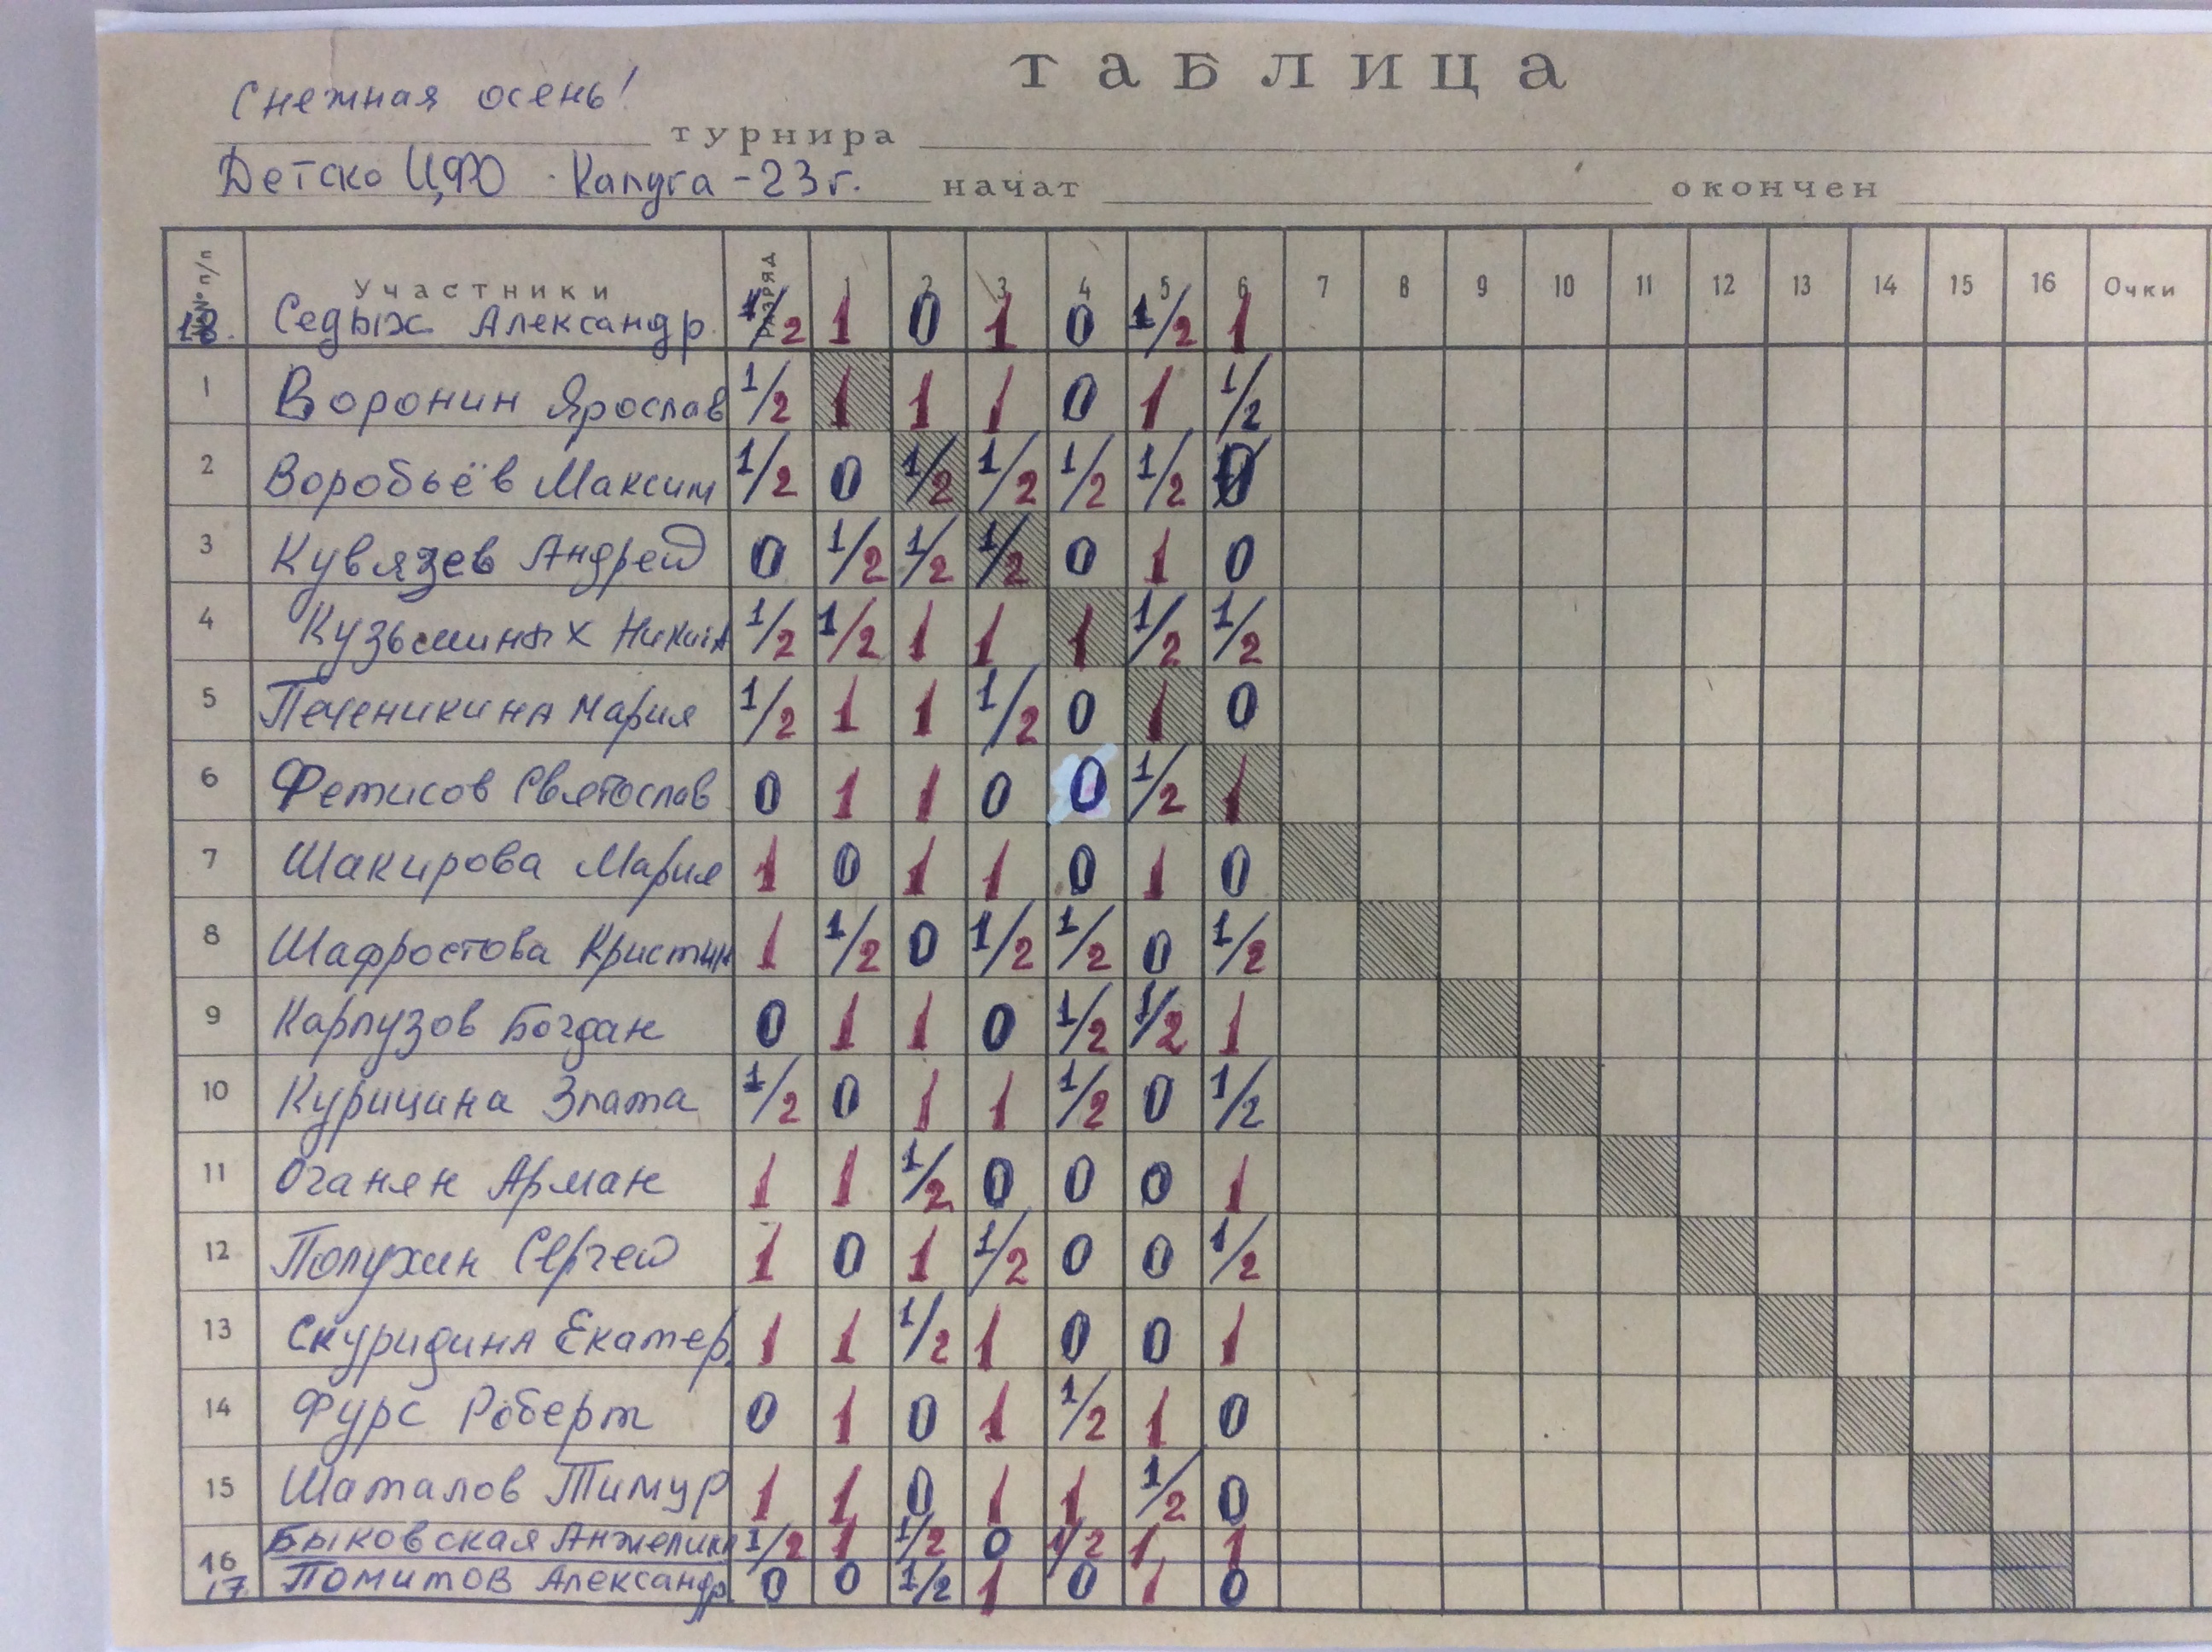 ТАБЛИЦА
Снежная осень!
турнира
Детско ЦФО · Калуга - 23 г. начат окончен
№ п/п Участники РАЗРЯД 1 2 3 4 5 6 7 8 9 10 11 12 13 14 15 16 Очки
18. Седых Александр. 1/2 1 0 1 0 1/2 1
1 Воронин Ярослав 1/2 1 1 1 0 1 1/2
2 Воробьёв Максим 1/2 0 1/2 1/2 1/2 1/2 0
3 Кувязев Андрей 0 1/2 1/2 1/2 0 1 0
4 Кузьминых Никита 1/2 1/2 1 1 1 1/2 1/2
5 Печеникина Мария 1/2 1 1 1/2 0 1 0
6 Фетисов Святослав 0 1 1 0 0 1/2 1
7 Шакирова Мария 1 0 1 1 0 1 0
8 Шафростова Кристин 1 1/2 0 1/2 1/2 0 1/2
9 Карпузов Богдан 0 1 1 0 1/2 1/2 1
10 Курицина Злата 1/2 0 1 1 1/2 0 1/2
11 Оганян Арман 1 1 1/2 0 0 0 1
12 Полухин Сергей 1 0 1 1/2 0 0 1/2
13 Скуридина Екатер. 1 1 1/2 1 0 0 1
14 Фурс Роберт 0 1 0 1 1/2 1 0
15 Шаталов Тимур 1 1 0 1 1 1/2 0
16 Быковская Анжелика 1/2 1 1/2 0 1/2 1 1
17 Помитов Александр 0 0 1/2 1 0 1 0